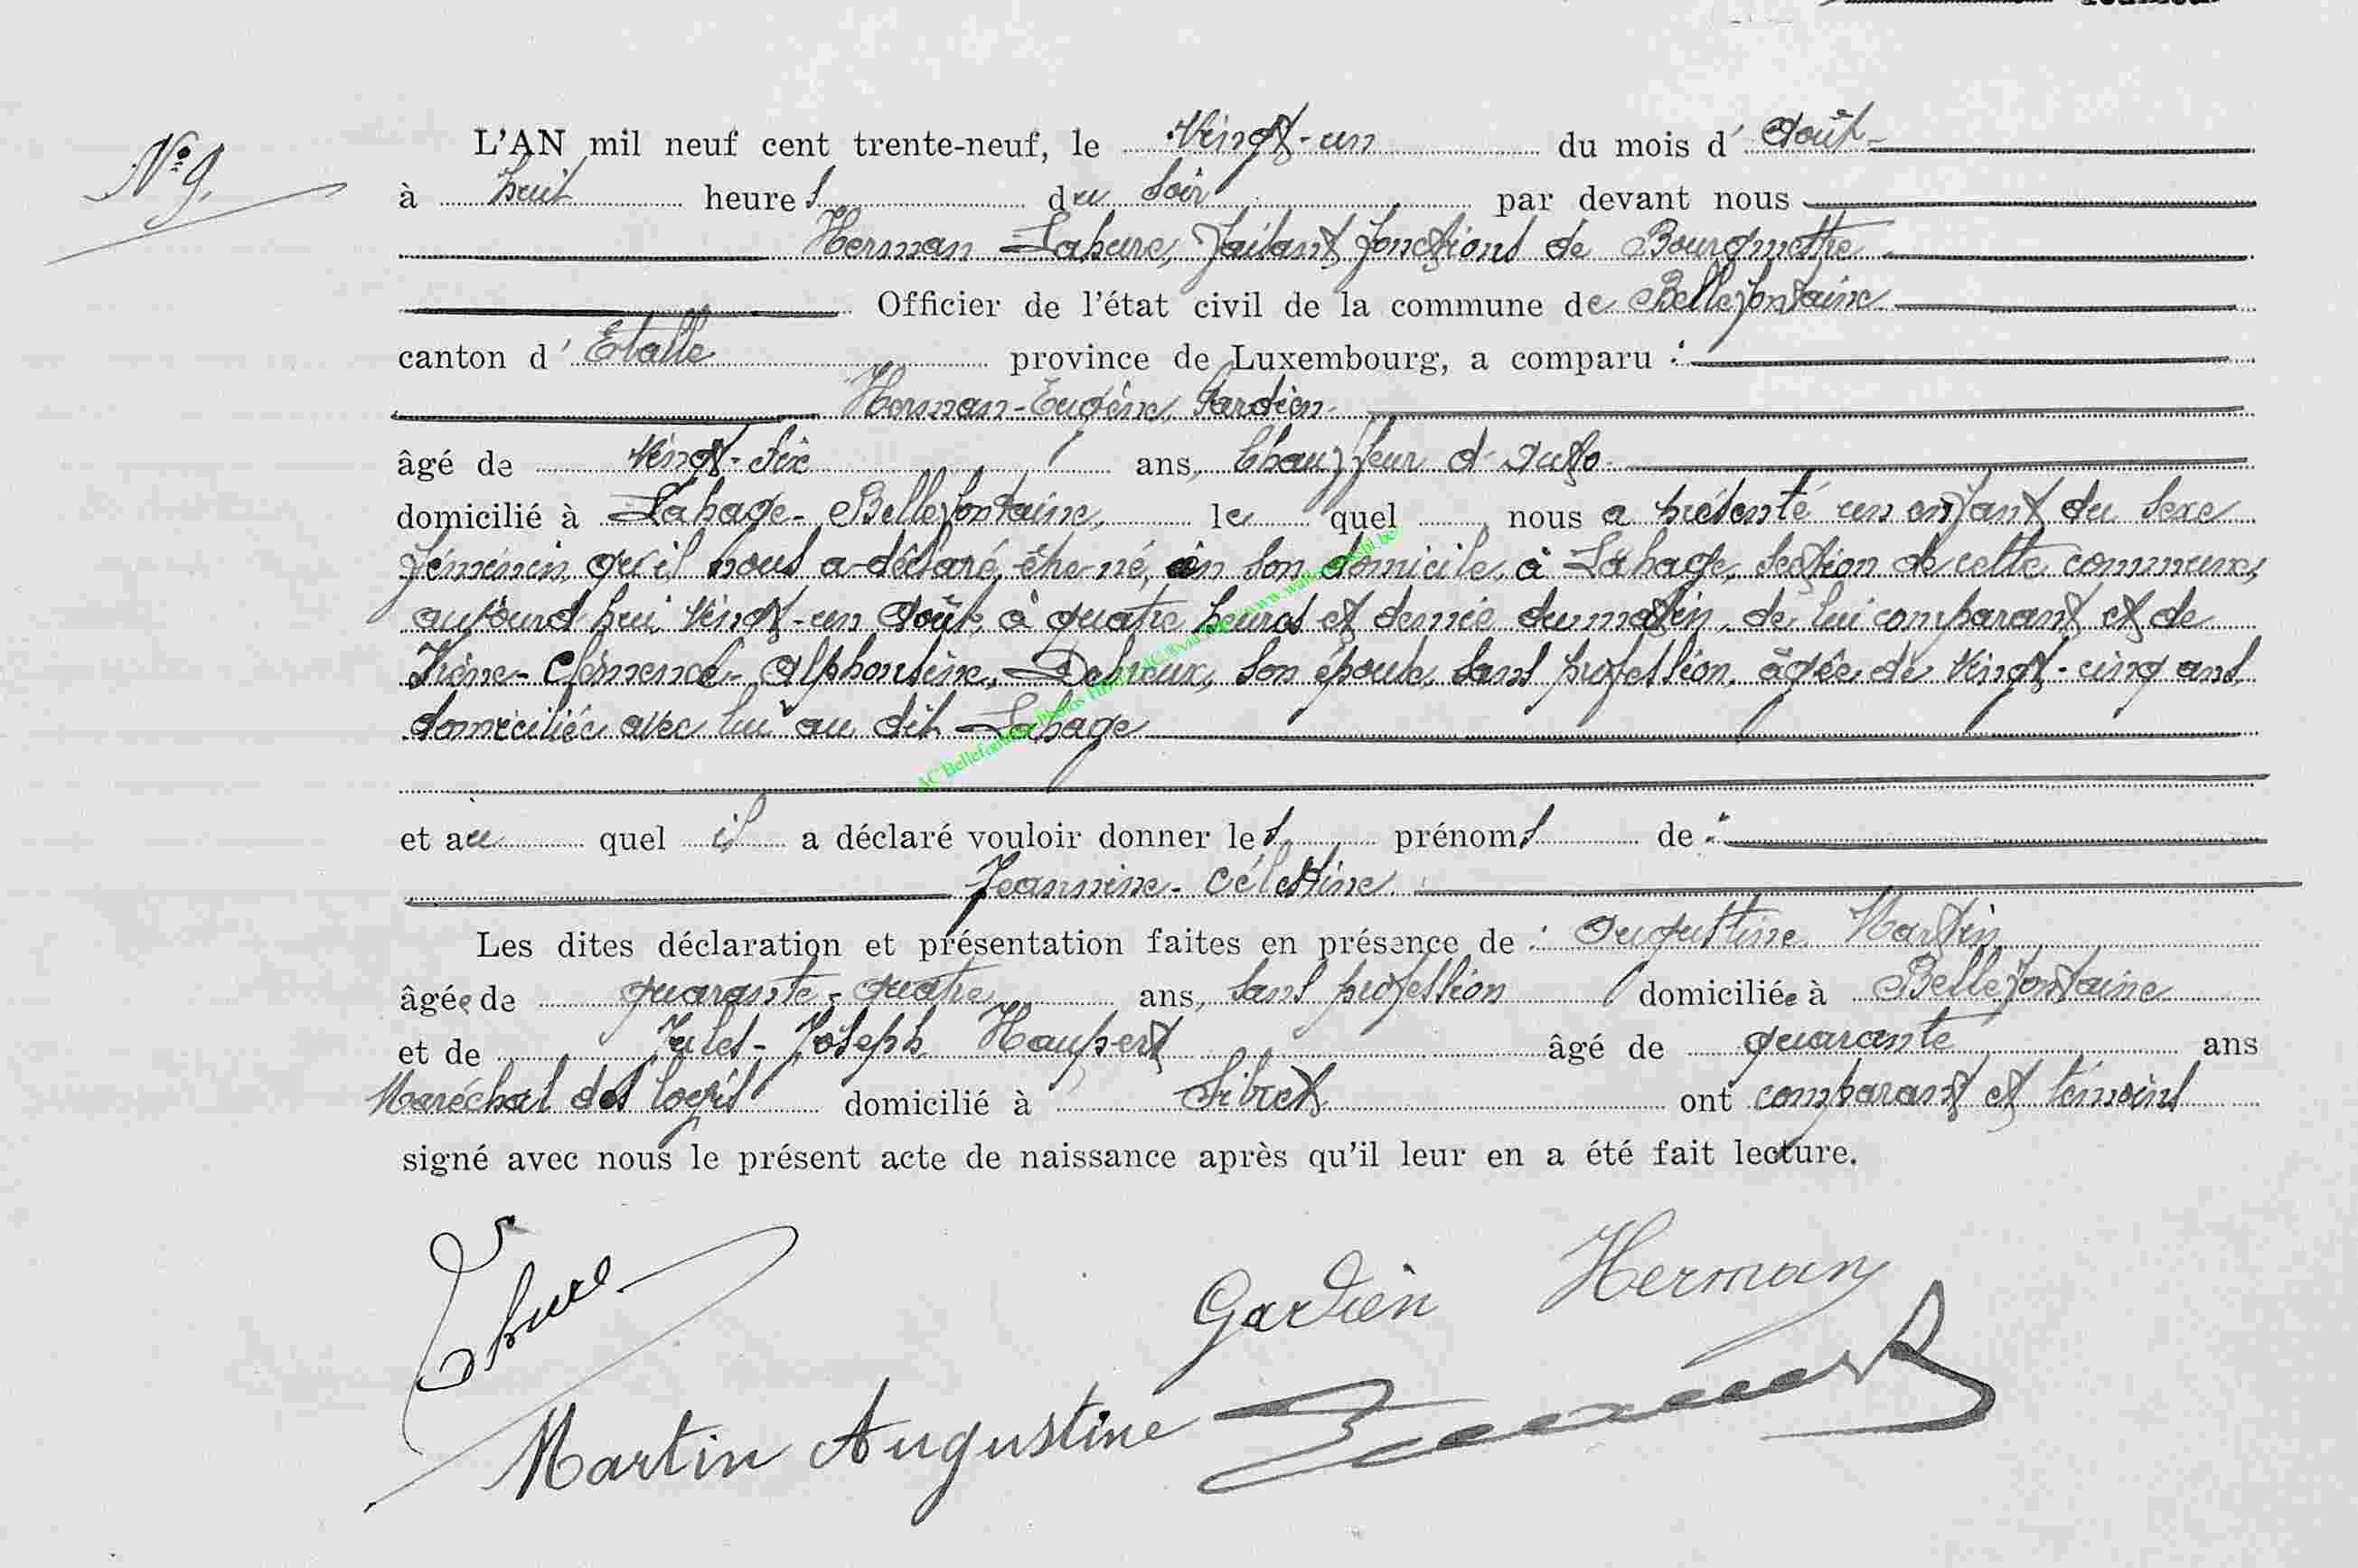 N° 9.
L'AN mil neuf cent trente-neuf, le Vingt-un du mois d' Août
à huit heures du soir par devant nous
Herman Lahure, faisant fonctions de Bourgmestre
Officier de l'état civil de la commune de Bellefontaine
canton d' Etalle province de Luxembourg, a comparu :
Herman-Eugène Gardien
âgé de vingt-six ans, Chauffeur d'auto
domicilié à Lahage-Bellefontaine, lequel nous a présenté un enfant du sexe
féminin, qu'il nous a déclaré être né, en son domicile, à Lahage, section de cette commune,
aujourd'hui, vingt-un Août, à quatre heures et demie du matin, de lui comparant et de
Irène-Clémence-Alphonsine, son épouse, sans profession, âgée de vingt-cinq ans,
domiciliée avec lui au dit Lahage
et auquel il a déclaré vouloir donner les prénoms de :
Jeannine-Célestine
Les dites déclaration et présentation faites en présence de : Augustine Martin
âgée de quarante-quatre ans, sans profession domiciliée à Bellefontaine
et de Jules-Joseph Haupert âgé de quarante ans
Maréchal des logis domicilié à Sibret ont comparant et témoins
signé avec nous le présent acte de naissance après qu'il leur en a été fait lecture.
Lahure
Gardien Herman
Martin Augustine